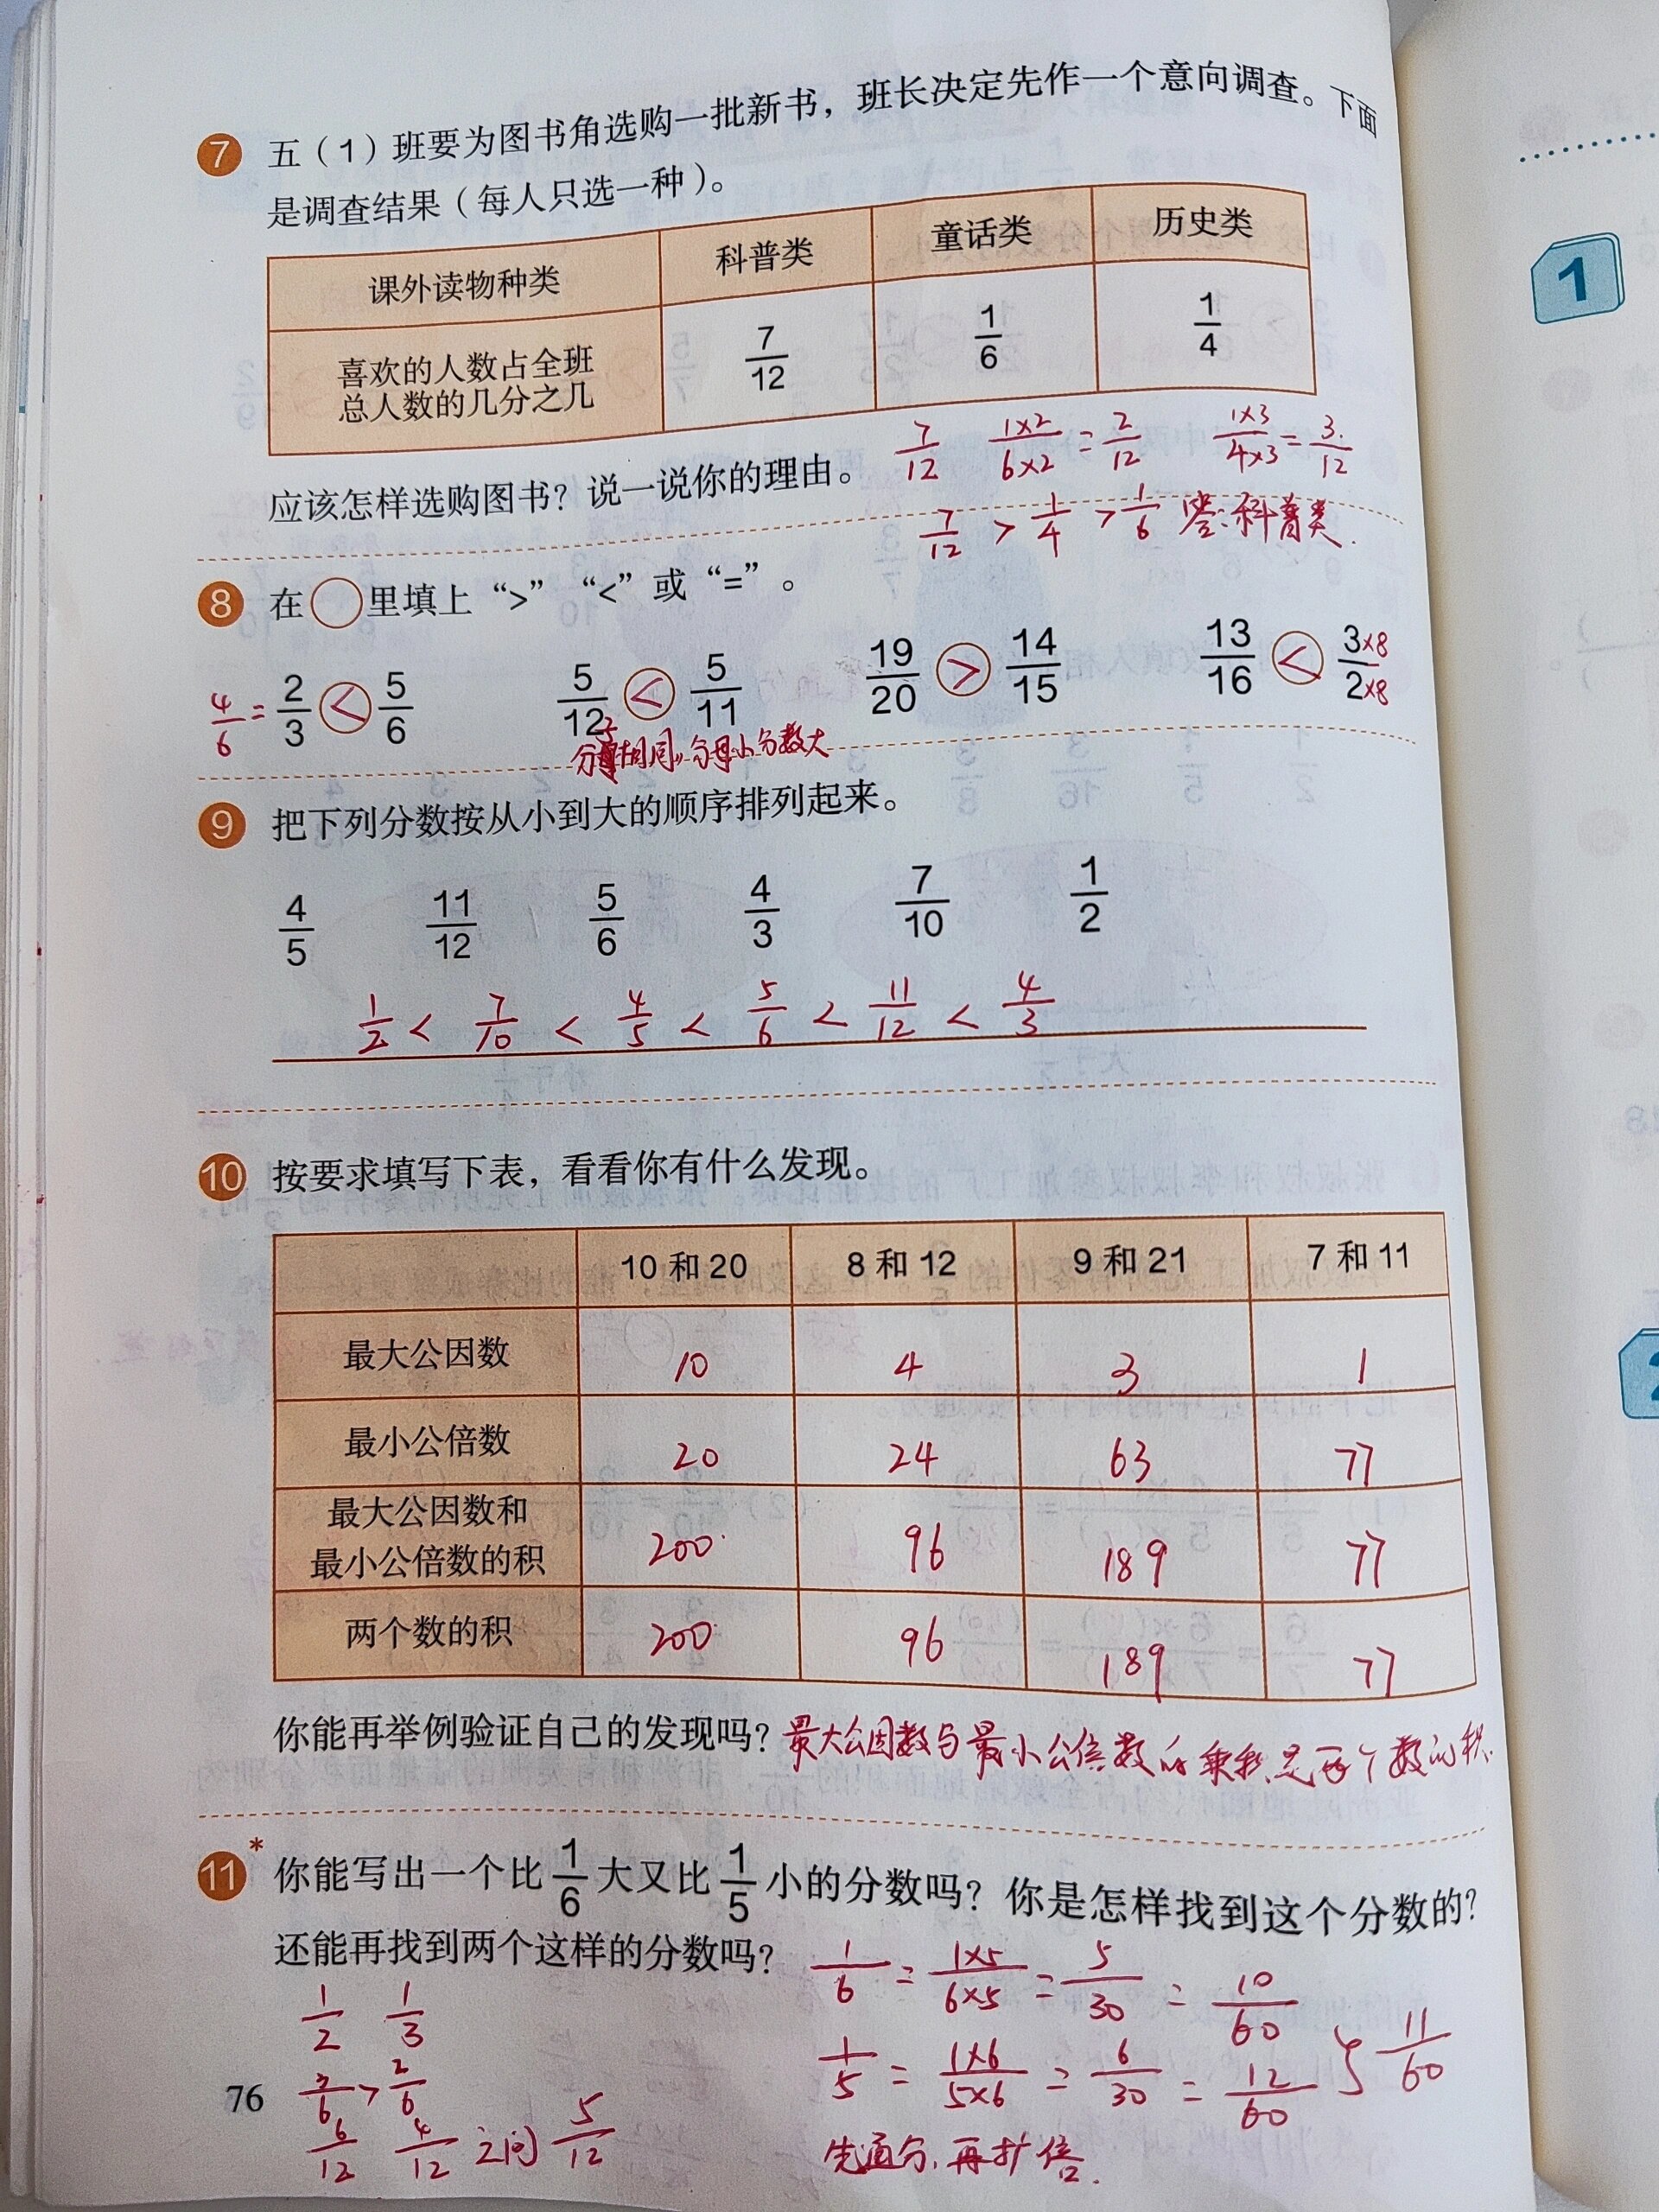 7 五（1）班要为图书角选购一批新书，班长决定先作一个意向调查。下面
是调查结果（每人只选一种）。
课外读物种类 科普类 童话类 历史类
喜欢的人数占全班总人数的几分之几 7/12 1/6 1/4
7/12 1×2/6×2=2/12 1×3/4×3=3/12
应该怎样选购图书？说一说你的理由。
7/12 > 1/4 > 1/6 答:科普类.
8 在○里填上“>”“<”或“=”。
4/6 = 2/3 < 5/6 5/12 < 5/11 19/20 > 14/15 13/16 < 3×8/2×8
分子相同，分母小分数大
9 把下列分数按从小到大的顺序排列起来。
4/5 11/12 5/6 4/3 7/10 1/2
1/2 < 7/10 < 4/5 < 5/6 < 11/12 < 4/3
10 按要求填写下表，看看你有什么发现。
10 和 20 8 和 12 9 和 21 7 和 11
最大公因数 10 4 3 1
最小公倍数 20 24 63 77
最大公因数和最小公倍数的积 200 96 189 77
两个数的积 200 96 189 77
你能再举例验证自己的发现吗？最大公因数与最小公倍数的乘积是两个数的积.
11* 你能写出一个比1/6大又比1/5小的分数吗？你是怎样找到这个分数的？
还能再找到两个这样的分数吗？
1/6 = 1×5/6×5 = 5/30 = 10/60
1/5 = 1×6/5×6 = 6/30 = 12/60
11/60
先通分,再扩倍.
1/2 1/3
3/6 > 2/6
6/12 4/12 之间 5/12
76
1